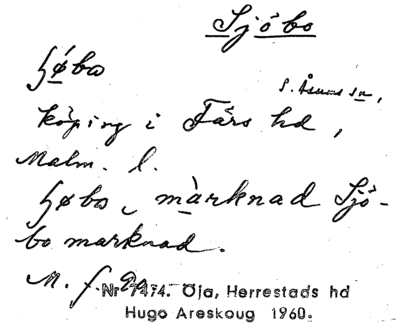 Sjöbo
ʃøbo
S. Åsums sn,
köping i Färs hd,
Malm. l.
ʃøbo, marknad Sjö-
bo marknad.
M. f.
Nr 7474. Öja, Herrestads hd
Hugo Areskoug 1960.